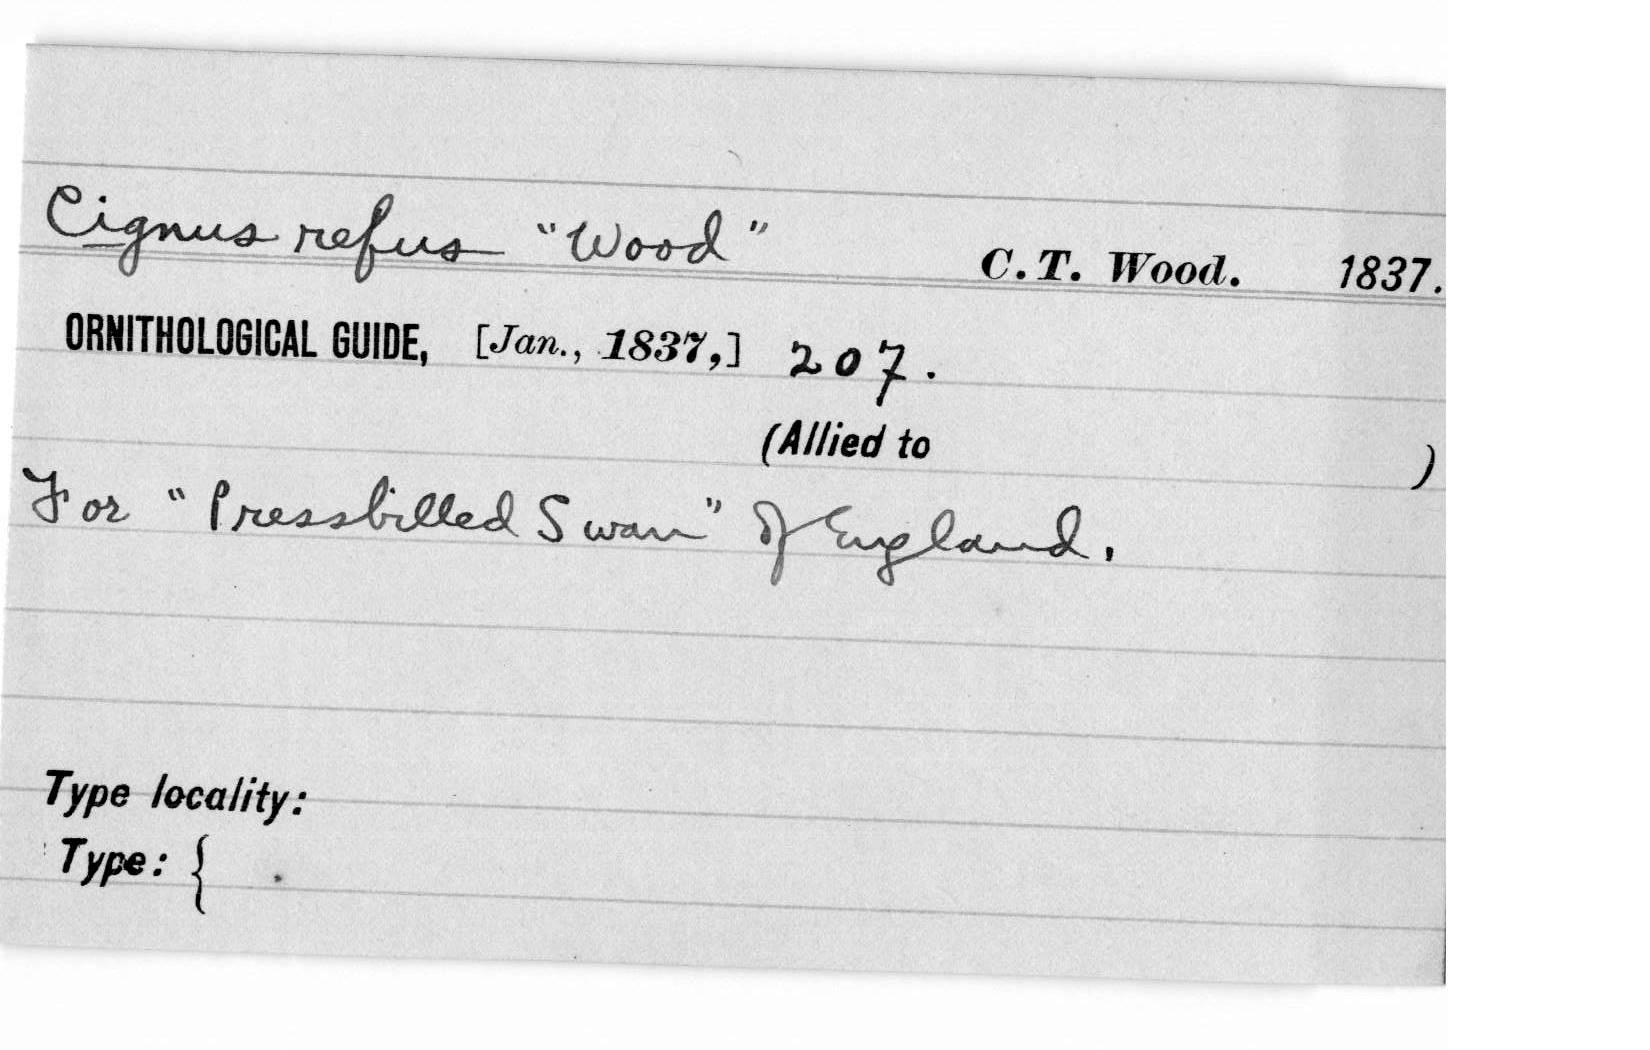 Cignus refus "Wood" C. T. Wood. 1837.
ORNITHOLOGICAL GUIDE, [Jan., 1837,] 207.
(Allied to )
For "Pressbilled Swan" of England.
Type locality:
Type: {